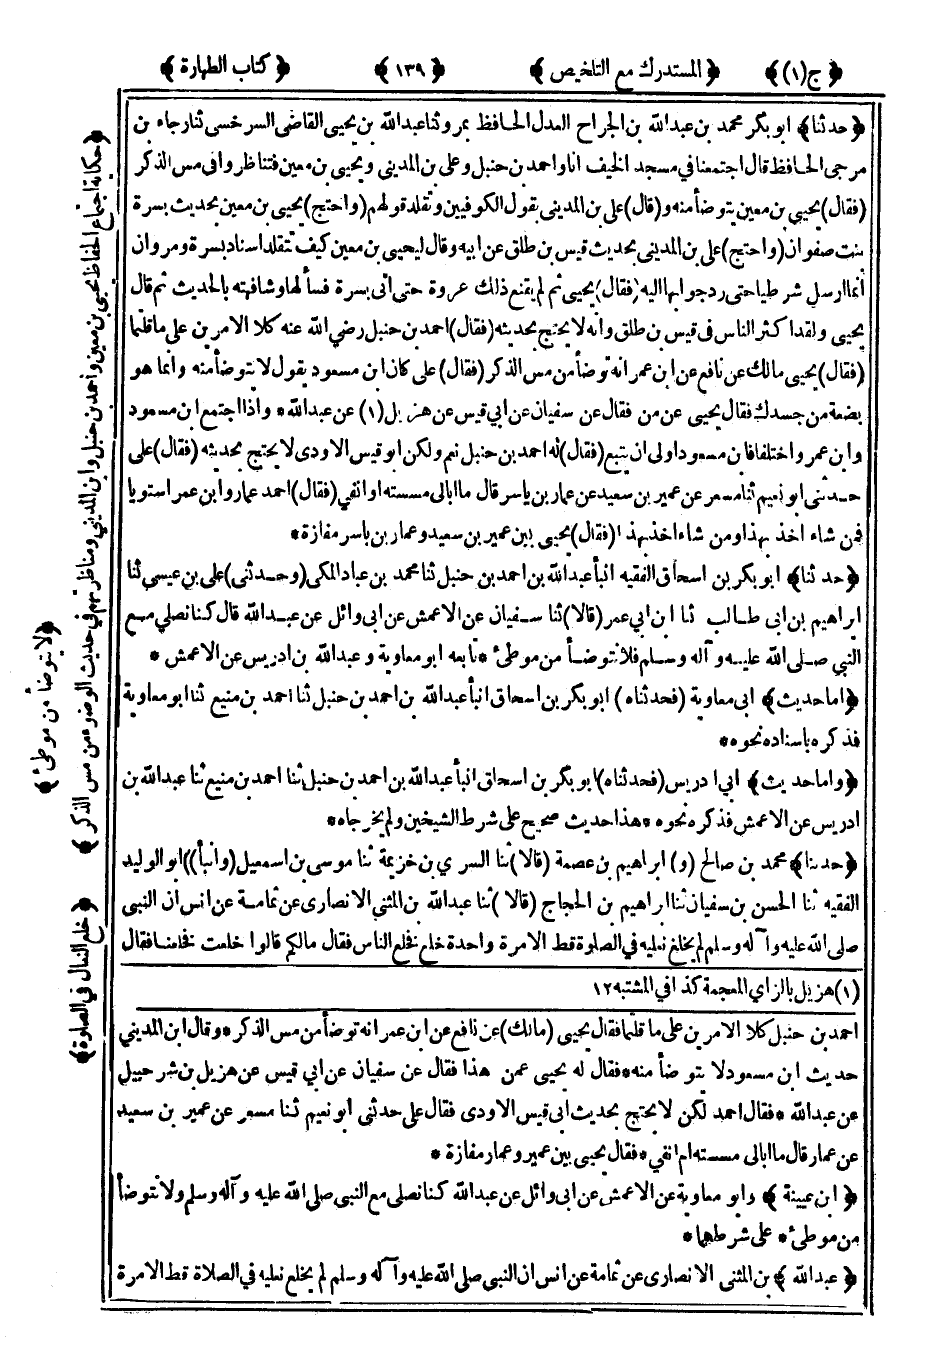 ﴿ ج (١) ﴾ ﴿ المستدرك مع التلخيص ﴾ ﴿ ١٣٩ ﴾ ﴿ كتاب الطهارة ﴾
﴿ حدثنا ﴾ ابو بكر محمد بن عبد الله بن الجراح العدل الحافظ بمرو ثنا عبد الله بن يحيى القاضى السرخسى ثنا رجاء بن
مرجى الحافظ قال اجتمعنا في مسجد الخيف انا واحمد بن حنبل وعلى بن المديني ويحيى بن معين فتناظروا فى مس الذكر
(فقال) يحيى بن معين يتوضأ منه و(قال) على بن المديني بقول الكوفيين وتقلد قولهم (واحتج) يحيى بن معين بحديث بسرة
بنت صفوان (واحتج) على بن المديني بحديث قيس بن طلق عن ابيه وقال ليحيى بن معين كيف تتقلد اسناد بسرة ومروان
أنما ارسل شرطيا حتى رد جوابها اليه (فقال) يحيى ثم لم يقنع ذلك عروة حتى أتى بسرة فسألها وشافهته بالحديث ثم قال
يحيى ولقد اكثر الناس فى قيس بن طلق وانه لا يحتج بحديثه (فقال) احمد بن حنبل رضي الله عنه كلا الامرين على ما قلتما
(فقال) يحيى مالك عن نافع عن ابن عمر انه توضأ من مس الذكر (فقال) على كان ابن مسعود يقول لا يتوضأ منه وانما هو
بضعة من جسدك فقال يحيى عن من فقال عن سفيان عن ابي قيس عن هزيل (١) عن عبد الله * واذا اجتمع ابن مسعود
وابن عمر واختلفا فابن مسعود اولى ان يتبع (فقال) له احمد بن حنبل نعم ولكن ابو قيس الاودى لا يحتج بحديثه (فقال) على
حدثنى ابو نعيم ثنا مسعر عن عمير بن سعيد عن عمار بن ياسر قال ما ابالى مسسته او انفي (فقال) احمد عمار وابن عمر استويا
فمن شاء اخذ بهذا ومن شاء اخذ بهذا (فقال) يحيى بين عمير بن سعيد وعمار بن ياسر مفازة *
﴿ حدثنا ﴾ ابو بكر بن اسحاق الفقيه انبأ عبد الله بن احمد بن حنبل ثنا محمد بن عباد المكى (وحدثنى) على بن عيسى ثنا
ابراهيم بن ابى طالب ثنا ابن ابي عمر (قالا) ثنا سفيان عن الاعمش عن ابى وائل عن عبد الله قال كنا نصلي مع
النبي صلى الله عليه وآله وسلم فلا نتوضأ من موطئ * تابعه ابو معاوية وعبد الله بن ادريس عن الاعمش *
﴿ اما حديث ﴾ ابى معاوية (فحدثناه) ابو بكر بن اسحاق انبأ عبد الله بن احمد بن حنبل ثنا احمد بن منيع ثنا ابو معاوية
فذكره باسناده نحوه *
﴿ واما حديث ﴾ ابي ادريس (فحدثناه) ابو بكر بن اسحاق انبأ عبد الله بن احمد بن حنبل ثنا احمد بن منيع ثنا عبد الله بن
ادريس عن الاعمش فذكره نحوه * هذا حديث صحيح على شرط الشيخين ولم يخرجاه *
﴿ حدثنا ﴾ محمد بن صالح (و) ابراهيم بن عصمة (قالا) ثنا السري بن خزيمة ثنا موسى بن اسمعيل (وانبأ) ابو الوليد
الفقيه ثنا الحسن بن سفيان ثنا ابراهيم بن الحجاج (قالا) ثنا عبد الله بن المثنى الانصارى عن ثمامة عن انس ان النبى
صلى الله عليه وآله وسلم لم يخلع نعليه في الصلوة قط الا مرة واحدة خلع فخلع الناس فقال مالكم قالوا خلعت فخلعنا فقال
(١) هزيل بالزاي المعجمة كذا في المشتبه ١٢
احمد بن حنبل كلا الامرين على ما قلتما فقال يحيى (مالك) عن نافع عن ابن عمر انه توضأ من مس الذكر * وقال ابن المديني
حديث ابن مسعود لا يتوضأ منه * فقال له يحيى عمن هذا فقال عن سفيان عن ابي قيس عن هزيل بن شرحبيل
عن عبد الله * فقال احمد لكن لا يحتج بحديث ابى قيس الاودى فقال على حدثنى ابو نعيم ثنا مسعر عن عمير بن سعيد
عن عمار قال ما ابالى مسسته ام انفي * فقال يحيى بين عمير وعمار مفازة *
﴿ ابن عيينة ﴾ وابو معاوية عن الاعمش عن ابى وائل عن عبد الله كنا نصلى مع النبى صلى الله عليه وآله وسلم ولا نتوضأ
من موطئ * على شرطهما *
﴿ عبد الله ﴾ بن المثنى الانصارى عن ثمامة عن انس ان النبى صلى الله عليه وآله وسلم لم يخلع نعليه في الصلاة قط الا مرة
﴿ حكاية اجتماع الحفاظ يحيى بن معين واحمد بن حنبل وابن المديني ومناظرتهم في حديث الوضوء من مس الذكر ﴾
﴿ لا يتوضأ من موطئ ﴾
﴿ خلع النعال في الصلوة ﴾